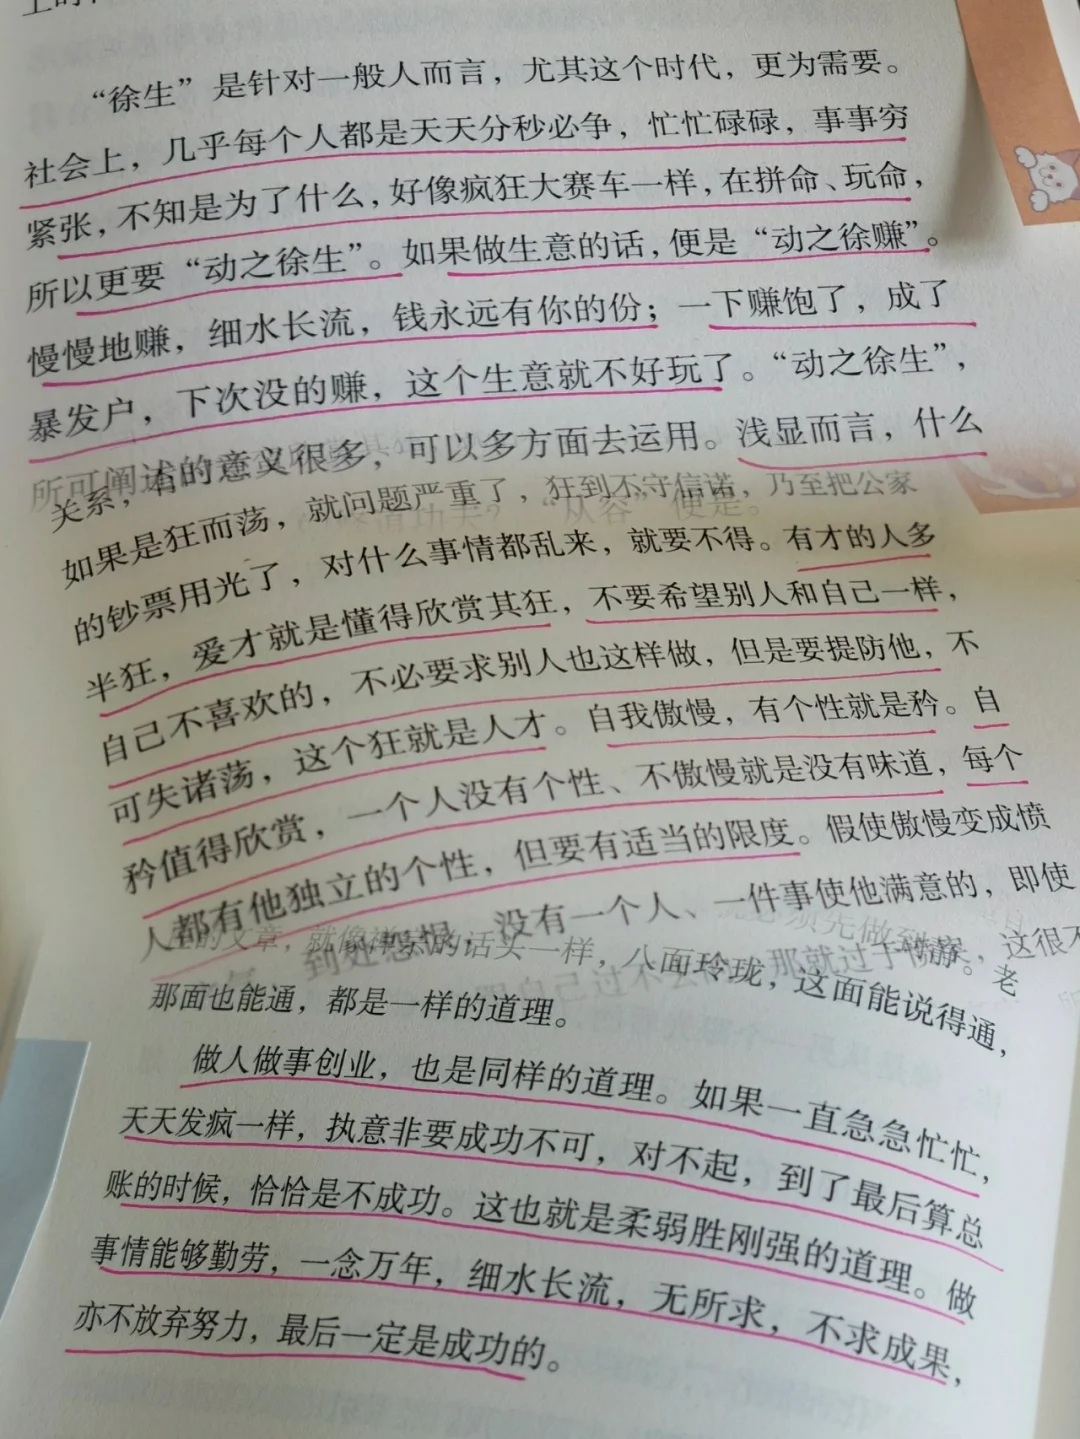 “徐生”是针对一般人而言，尤其这个时代，更为需要。
社会上，几乎每个人都是天天分秒必争，忙忙碌碌，事事穷
紧张，不知是为了什么，好像疯狂大赛车一样，在拼命、玩命，
所以更要“动之徐生”。如果做生意的话，便是“动之徐赚”。
慢慢地赚，细水长流，钱永远有你的份；一下赚饱了，成了
暴发户，下次没的赚，这个生意就不好玩了。“动之徐生”，
所可阐述的意义很多，可以多方面去运用。浅显而言，什么
“从容”便是。
关系，
如果是狂而荡，就问题严重了，狂到不守信诺，乃至把公家
的钞票用光了，对什么事情都乱来，就要不得。有才的人多
半狂，爱才就是懂得欣赏其狂，不要希望别人和自己一样，
自己不喜欢的，不必要求别人也这样做，但是要提防他，不
可失诸荡，这个狂就是人才。自我傲慢，有个性就是矜。自
矜值得欣赏，一个人没有个性、不傲慢就是没有味道，每个
人都有他独立的个性，但要有适当的限度。假使傲慢变成愤
到处怨恨，没有一个人、一件事使他满意的，即使
的文章，就像禅宗的话头一样，八面玲珑，这面能说得通，
那面也能通，都是一样的道理。
做人做事创业，也是同样的道理。如果一直急急忙忙，
天天发疯一样，执意非要成功不可，对不起，到了最后算总
账的时候，恰恰是不成功。这也就是柔弱胜刚强的道理。做
事情能够勤劳，一念万年，细水长流，无所求，不求成果，
亦不放弃努力，最后一定是成功的。